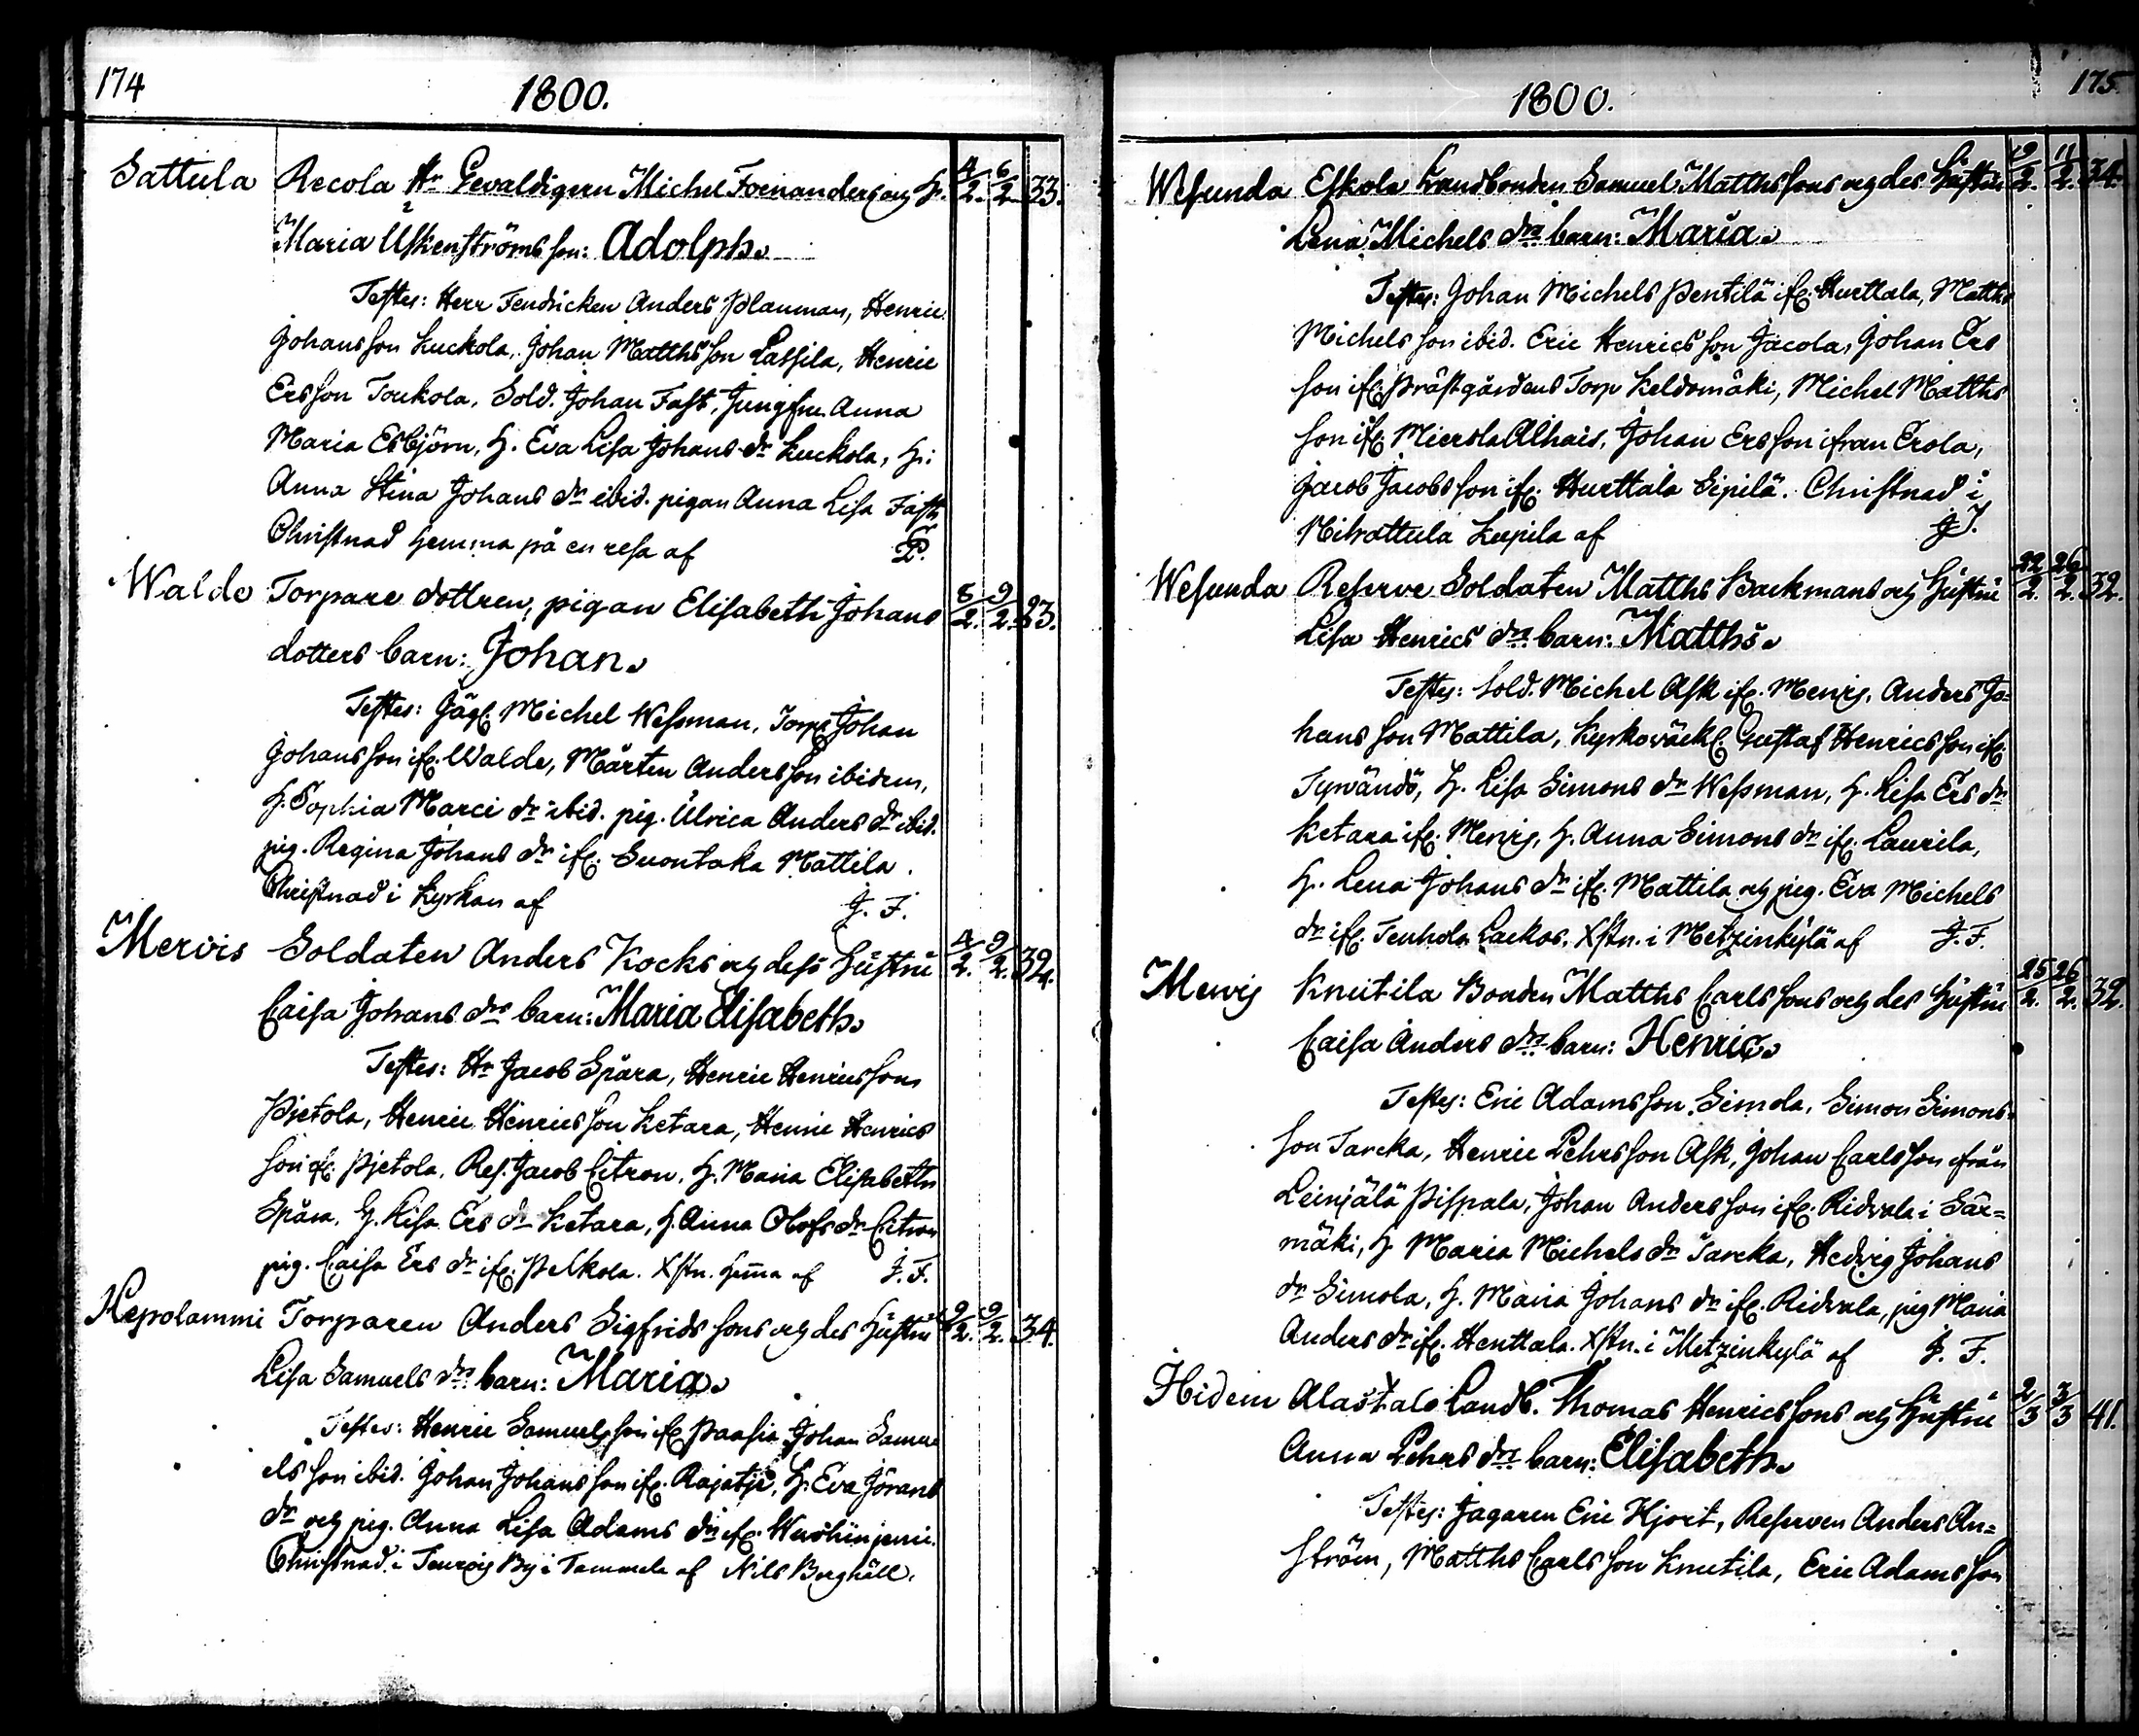 174
1800.
Sattula Recola Hr Gevaldigern Michel Foenanders och H. 4/2. 6/2. 33.
Maria Uskenströms son: Adolph.
Testes: Herr Fendricken Anders Planman, Henric
Johansson Kuckola, Johan Matthsson Lassila, Henric
Ersson Toukola, Sold. Johan Fast, Jungfru Anna
Maria Esbjörn, H. Eva Lisa Johans dr Kuckola, H:
Anna Stina Johans dr ibid. pigan Anna Lisa Fast
Christnad hemma på en resa af
Walde Torpare dottren, pigan Elisabeth Johans 8/2. 9/2. 23.
dotters barn: Johan.
Testes: Jäg. Michel Wessman, Torp. Johan
Johansson ifr. Walde, Mårten Andersson ibidem,
H. Sophia Marci dr ibid. pig. Ulrica Anders dr ibid.
pig. Regina Johans dr ifr. Suontaka Mattila.
Christnad i Kyrkan af J. F.
Mervis Soldaten Anders Kocks och dess Hustru 4/2. 9/2. 32.
Caisa Johans drs barn: Maria Elisabeth.
Testes: Hr Jacob Spåra, Henric Henricsson
Pjetola, Henric Henricsson Ketara, Henric Henrics
son ifr. Pjetola, Res. Jacob Citron, H. Maria Elisabeth
Spåra, H. Lisa Ers dr Ketara, H. Anna Olofs dr Citron
pig. Caisa Ers dr ifr. Pelkola. Xstn. hema af J. F.
Kepolammi Torparen Anders Sigfrids sons och des Hustru 9/2. 9/2. 34.
Lisa Samuels drs barn: Maria.
Testes: Henric Samuelsson ifr Paasia Johan Samu
elsson ibid. Johan Johansson ifr. H. Eva Jörans
dr och pig. Anna Lisa Adams dr ifr.
Christnad i By i Tammela af Nils Berghäll.
1800.
175
Wesunda Eskola Landbonden Samuel Matthssons och des Hustru 10/2. 11/2. 34.
Lena Michels drs barn: Maria.
Testes: Johan Michels Pentilä ifr. Hurttala, Matths
Michelsson ibid. Eric Henricsson Jacola, Johan Ers
son ifr. Prästgårdens Torp Keldomäki, Michel Matths
son ifr. Mierola Alhais, Johan Ersson ifrån Erola,
Jacob Jacobsson ifr. Hurttala Sipilä. Christnad i
Mihattula Kepila af
Wesunda Reserve Soldaten Matths Backmans och Hustru 22/2. 26/2. 32.
Lisa Henrics drs barn: Matths.
Testes: Sold. Michel Ask ifr. Mervis, Anders Jo=
hansson Mattila, Kyrkoväck. Gustaf Henricsson ifr.
Tyrvändö, H. Lisa Simons dr Wessman, H. Lisa Ers dr
Ketara ifr. Mervis, H. Anna Simons dr ifr. Laurila,
H. Lena Johans dr ifr. Mattila och pig. Eva Michels
dr ifr. Tenhola Lackos. Xstn. i Metzinkylä af J. F.
Mervis Knutila Bonden Matths Carlssons och des Hustru 25/2. 26/2. 32.
Caisa Anders drs barn: Henric.
Testes: Eric Adamsson Simola, Simon Simons
son Jareka, Henric Pehrsson Ask, Johan Carlsson ifrån
Leinjälä Pispala, Johan Andersson ifr. Ridvala i Sär=
mäki, H Maria Michels dr Jareka, Hedvig Johans
dr Simola, H. Maria Johans dr ifr. Ridvala, pig Maria
Anders dr ifr. Henttala. Xstn. i Metzinkylä af J. F.
Hidein Alastalo Landb. Thomas Henricssons och Hustru 2/3 3/3 41.
Anna Pehrs drs barn: Elisabeth.
Testes: Jagaren Eric Hjort, Reserven Anders An=
ström, Matths Carlsson Knutila, Eric Adamsson